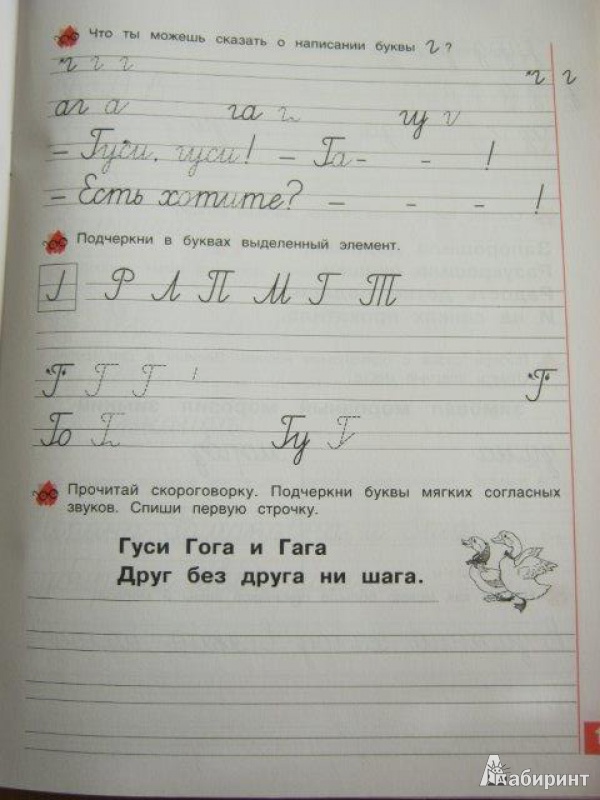 Что ты можешь сказать о написании буквы г ?
г г г г г
аг а га г гу г
– Гуси, гуси! – Га- - - !
– Есть хотите? – - - - !
Подчеркни в буквах выделенный элемент.
Р Л П М Г Т
Г Г Г Г
Го Г Гу Г
Прочитай скороговорку. Подчеркни буквы мягких согласных
звуков. Спиши первую строчку.
Гуси Гога и Гага
Друг без друга ни шага.
Лабиринт